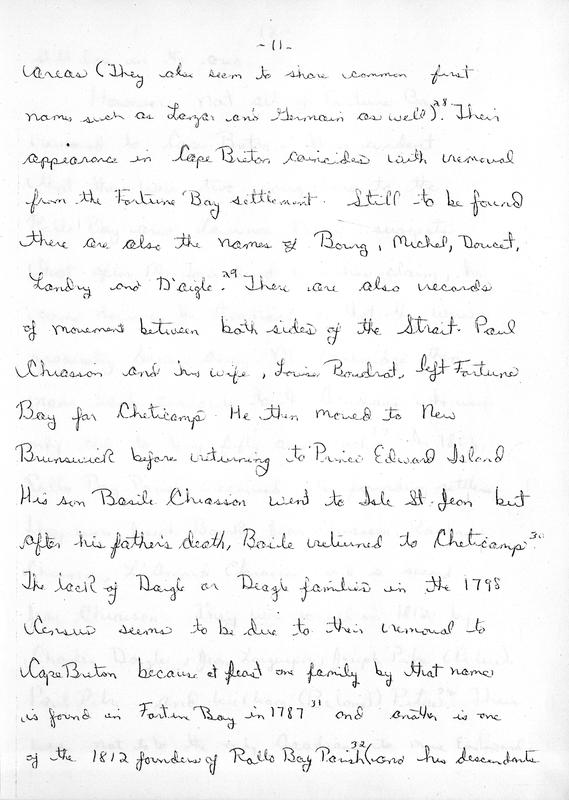 -11-
areas (They also seem to share common first
names such as Lazar and Germain as well).28 Their
appearance in Cape Breton coincides with removal
from the Fortune Bay settlement. Still to be found
there are also the names of Bourg, Michel, Doucet,
Landry and D'aigle.29 There are also records
of movement between both sides of the Strait. Paul
Chiasson and his wife, Louise Boudrot, left Fortune
Bay for Cheticamp. He then moved to New
Brunswick before returning to Prince Edward Island
His son Basile Chiasson went to Isle St. Jean but
after his father's death, Basile returned to Cheticamp.30
The lack of Daigle or Deagle families in the 1798
Census seems to be due to their removal to
Cape Breton because at least one family by that name
is found in Fortune Bay in 1787 31 and another is one
of the 1812 founders of Rollo Bay Parish 32 (and his descendants